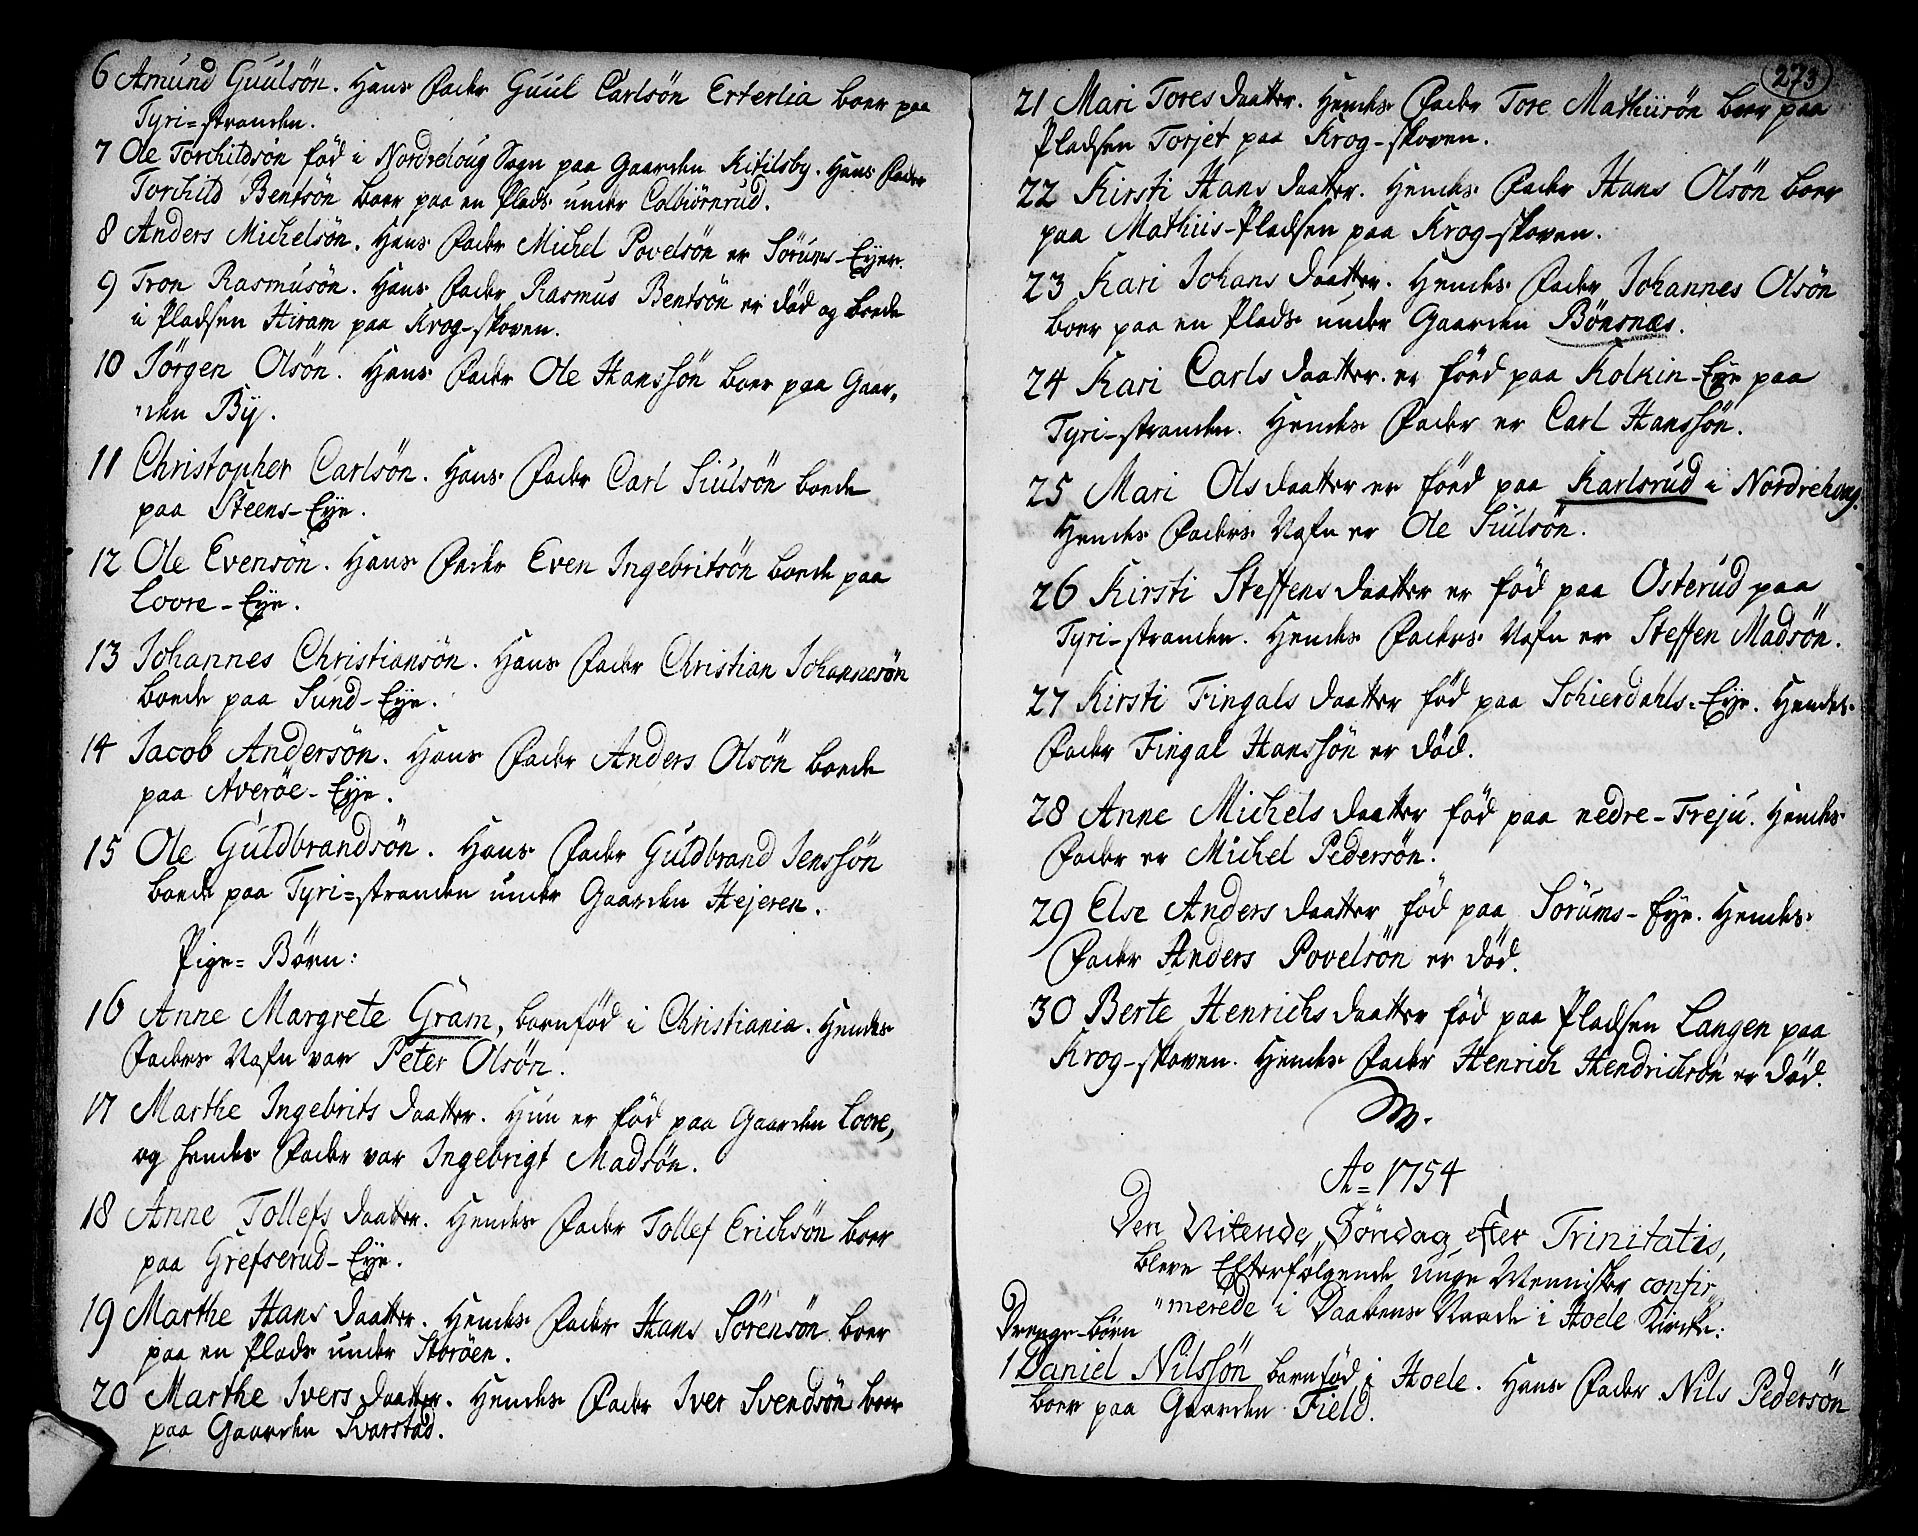 6 Amund Guulsön. Hans Fader Guul Carlsön Erterlia boer paa
Tyri=stranden.
7 Ole Torchildsön fød i Nordrehoug Sogn paa Gaarden Kitilsby. Hans Fader
Torchild Bentsön boer paa en Plads under Colbiörnrud.
8 Anders Michelsön. Hans Fader Michel Povelsön er Sörums-Eyer.
9 Tron Rasmusön. Hans Fader Rasmus Bentsön er død og boede
i Pladsen Hiram paa Krog-skoven.
10 Jörgen Olsön. Hans Fader Ole Hanssön boer paa Gaar„
„den By.
11 Christopher Carlsön. Hans Fader Carl Siulsön boede
paa Steens-Eye.
12 Ole Evensön. Hans Fader Even Ingebritsön boede paa
Loore-Eye.
13 Johannes Christiansön. Hans Fader Christian Johannesön
boede paa Sund-Eye.
14 Jacob Andersön. Hans Fader Anders Olsön boede
paa Averöe-Eye.
15 Ole Guldbrandsön. Hans Fader Guldbrand Jenssön
boede paa Tyri=stranden under Gaarden Hejeren.
Pige=Börn:
16 Anne Margrete Gram, barnfød i Christiania. Hendes
Faders Nafn var Peter Olsön.
17 Marthe Ingebrits daatter. Hun er fød paa Gaarden Loore,
og hendes Fader var Ingebrigt Madsön.
18 Anne Tollefs daatter. Hendes Fader Tollef Erichsön boer
paa Grefserud-Eye.
19 Marthe Hans daatter. Hendes Fader Hans Sörensön boer
paa en Plads under Storöen.
20 Marthe Ivers daatter. Hendes Fader Iver Svendsön boer
paa Gaarden Svarstad.
273
21 Mari Tores daatter. Hendes Fader Tore Mathiisön boer paa
Pladsen Torjet paa Krog-skoven.
22 Kirsti Hans daatter. Hendes Fader Hans Olsön boer
paa Mathiis-Pladsen paa Krog-skoven.
23 Kari Johans daatter. Hendes Fader Johannes Olsön
boer paa en Plads under Gaarden Bönsnæs.
24 Kari Carls daatter. er föed paa Kolkin-Eye paa
Tyri-stranden. Hendes Fader er Carl Hanssön.
25 Mari Ols daatter er föed paa Karlsrud i Nordrehoug.
Hendes Faders Nafn er Ole Siulsön.
26 Kirsti Steffens daatter er fød paa Osterud paa
Tyri-stranden. Hendes Faders Nafn er Steffen Madsön.
27 Kirsti Fingals daatter fød paa Schierdahls-Eye. Hendes
Fader Fingal Hanssön er död.
28 Anne Michels daatter fød paa nedre-Freju. Hendes
Fader er Michel Pedersön.
29 Else Anders daatter fød paa Sörums-Eye. Hendes
Fader Anders Povelsön er död.
30 Berte Henrichs daatter fød paa Pladsen Langen paa
Krog-skoven. Hendes Fader Henrich Hendrichsön er död.
Ao 1754
Den Nitende Söndag efter Trinitatis,
bleve Efterfølgende unge Mennisker confir„
„merede i Daabens Naade i Hoele Kirche:
Drenge-börn
1 Daniel Nilssön barnfød i Hoele. Hans Fader Nils Pedersön
boer paa Gaarden Field.